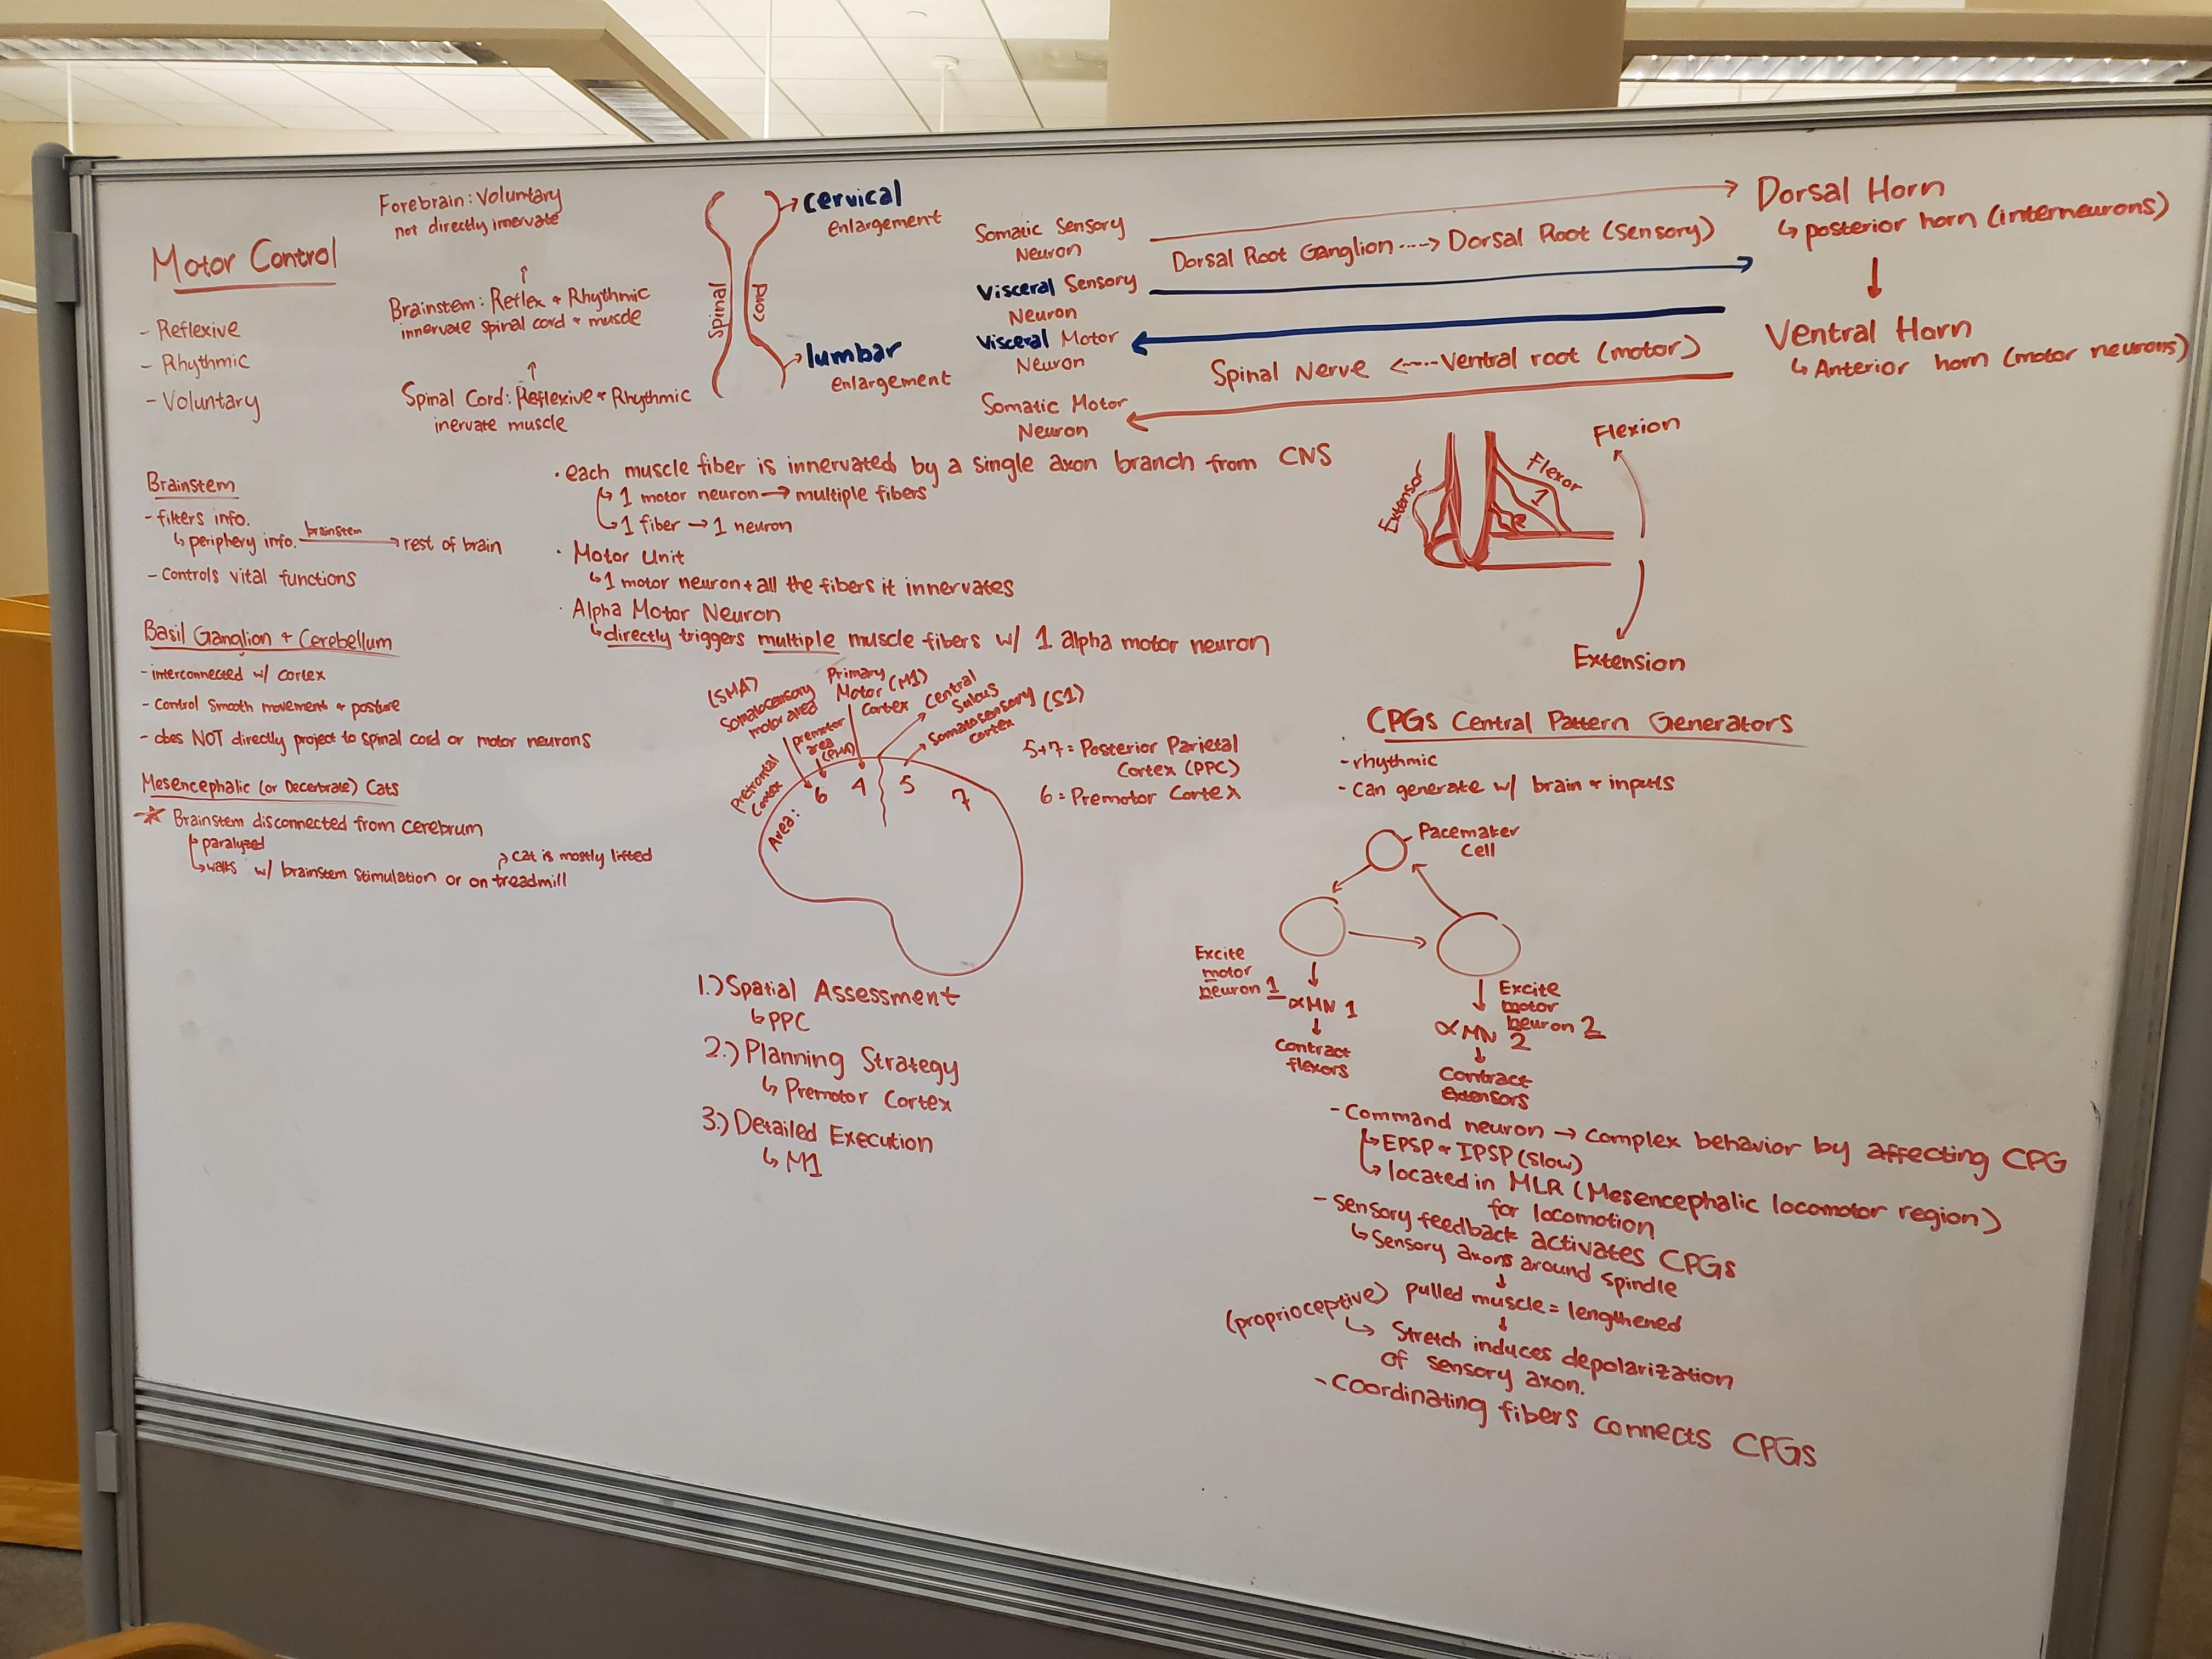 Motor Control
- Reflexive
- Rhythmic
- Voluntary
Forebrain: Voluntary
not directly innervate
↑
Brainstem: Reflex & Rhythmic
innervate spinal cord & muscle
↑
Spinal Cord: Reflexive & Rhythmic
inervate muscle
Spinal
Cord
→ cervical
enlargement
→ lumbar
enlargement
Somatic Sensory
Neuron
Visceral Sensory
Neuron
Visceral Motor
Neuron
Somatic Motor
Neuron
Dorsal Root Ganglion ----> Dorsal Root (Sensory)
Spinal Nerve <---- Ventral root (motor)
Dorsal Horn
↳ posterior horn (interneurons)
↓
Ventral Horn
↳ Anterior horn (motor neurons)
Brainstem
- filters info.
↳ periphery info. brainstem → rest of brain
- Controls vital functions
Basil Ganglion + Cerebellum
- interconnected w/ cortex
- Control smooth movement & posture
- obes NOT directly project to spinal cord or motor neurons
Mesencephalic (or Decerbrate) Cats
☆ Brainstem disconnected from cerebrum
↳ paralyzed
↳ walks w/ brainstem stimulation or on treadmill
↗ cat is mostly lifted
· each muscle fiber is innervated by a single axon branch from CNS
↳ 1 motor neuron → multiple fibers
↳ 1 fiber → 1 neuron
· Motor Unit
↳ 1 motor neuron + all the fibers it innervates
· Alpha Motor Neuron
↳ directly triggers multiple muscle fibers w/ 1 alpha motor neuron
Extensor
Flexor
1
Flexion
Extension
(SMA)
Somatosensory
motor area
Prefrontal
Cortex
premotor
area
(PMA)
Primary
Motor (M1)
Cortex
Central
Sulcus
Somatosensory (S1)
cortex
Area:
6
4
5
7
5+7 = Posterior Parietal
Cortex (PPC)
6 = Premotor Cortex
1.) Spatial Assessment
↳ PPC
2.) Planning Strategy
↳ Premotor Cortex
3.) Detailed Execution
↳ M1
CPGs Central Pattern Generators
- rhythmic
- Can generate w/ brain & inputs
Pacemaker
Cell
Excite
motor
neuron 1
↓
αMN 1
↓
Contract
flexors
Excite
motor
neuron 2
↓
αMN 2
↓
Contract
extensors
- Command neuron → complex behavior by affecting CPG
↳ EPSP & IPSP (slow)
↳ located in MLR (Mesencephalic locomotor region)
for locomotion
- sensory feedback activates CPGs
↳ sensory axons around spindle
↓
(proprioceptive) pulled muscle = lengthened
↓
↳ Stretch induces depolarization
of sensory axon.
- Coordinating fibers connects CPGs